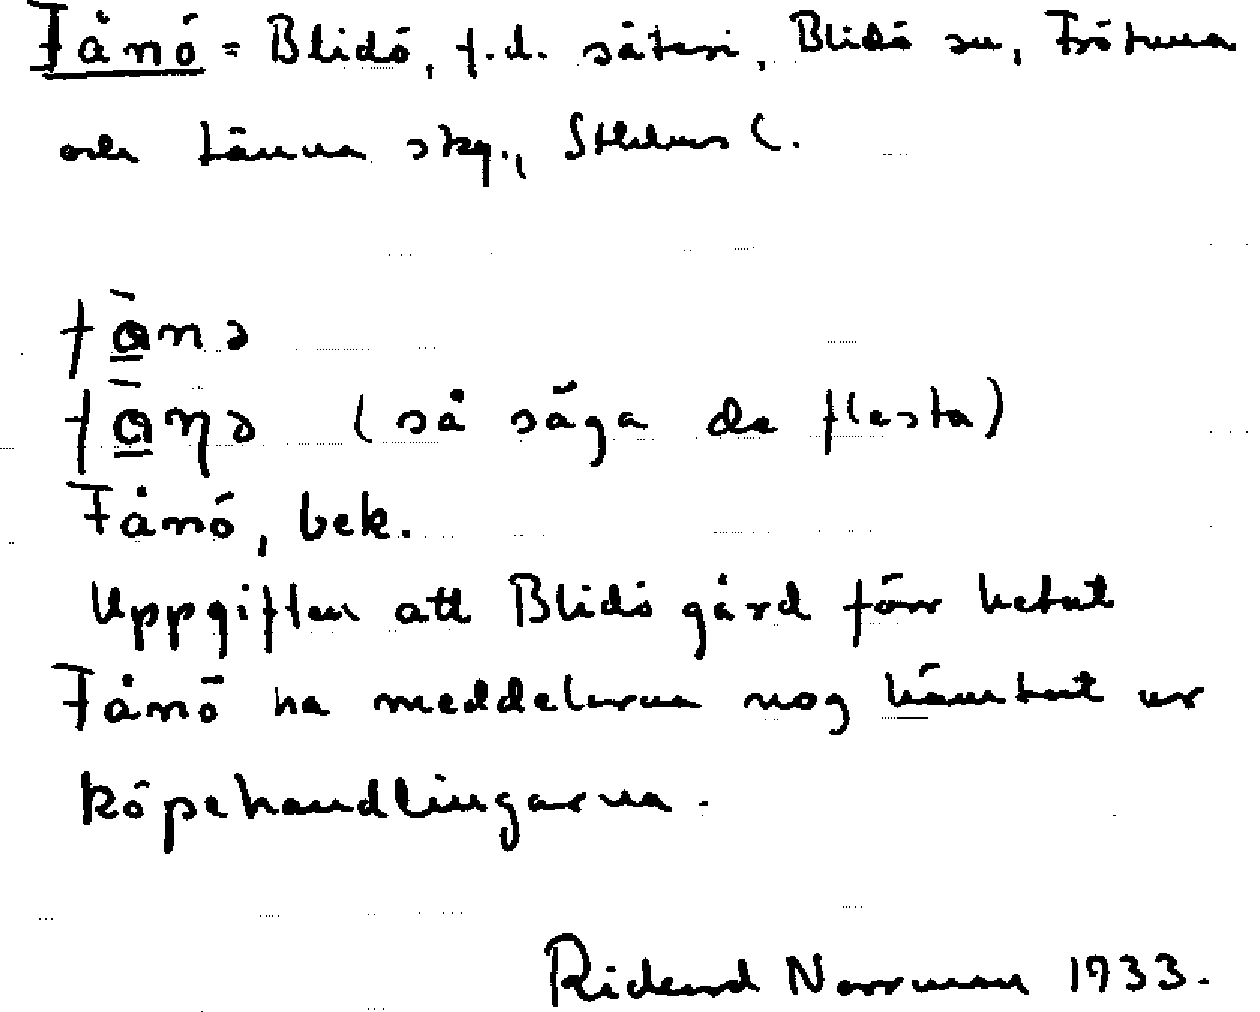 Fånö = Blidö, f.d. säteri, Blidö sn, Frötuna
och Länna skg., Sthlms l.
fånə
fåηə (så säga de flesta)
Fånö, bek.
Uppgiften att Blidö gård förr hetat
Fånö ha meddelarna nog hämtat ur
köpehandlingarna.
Rickard Norrman 1933.